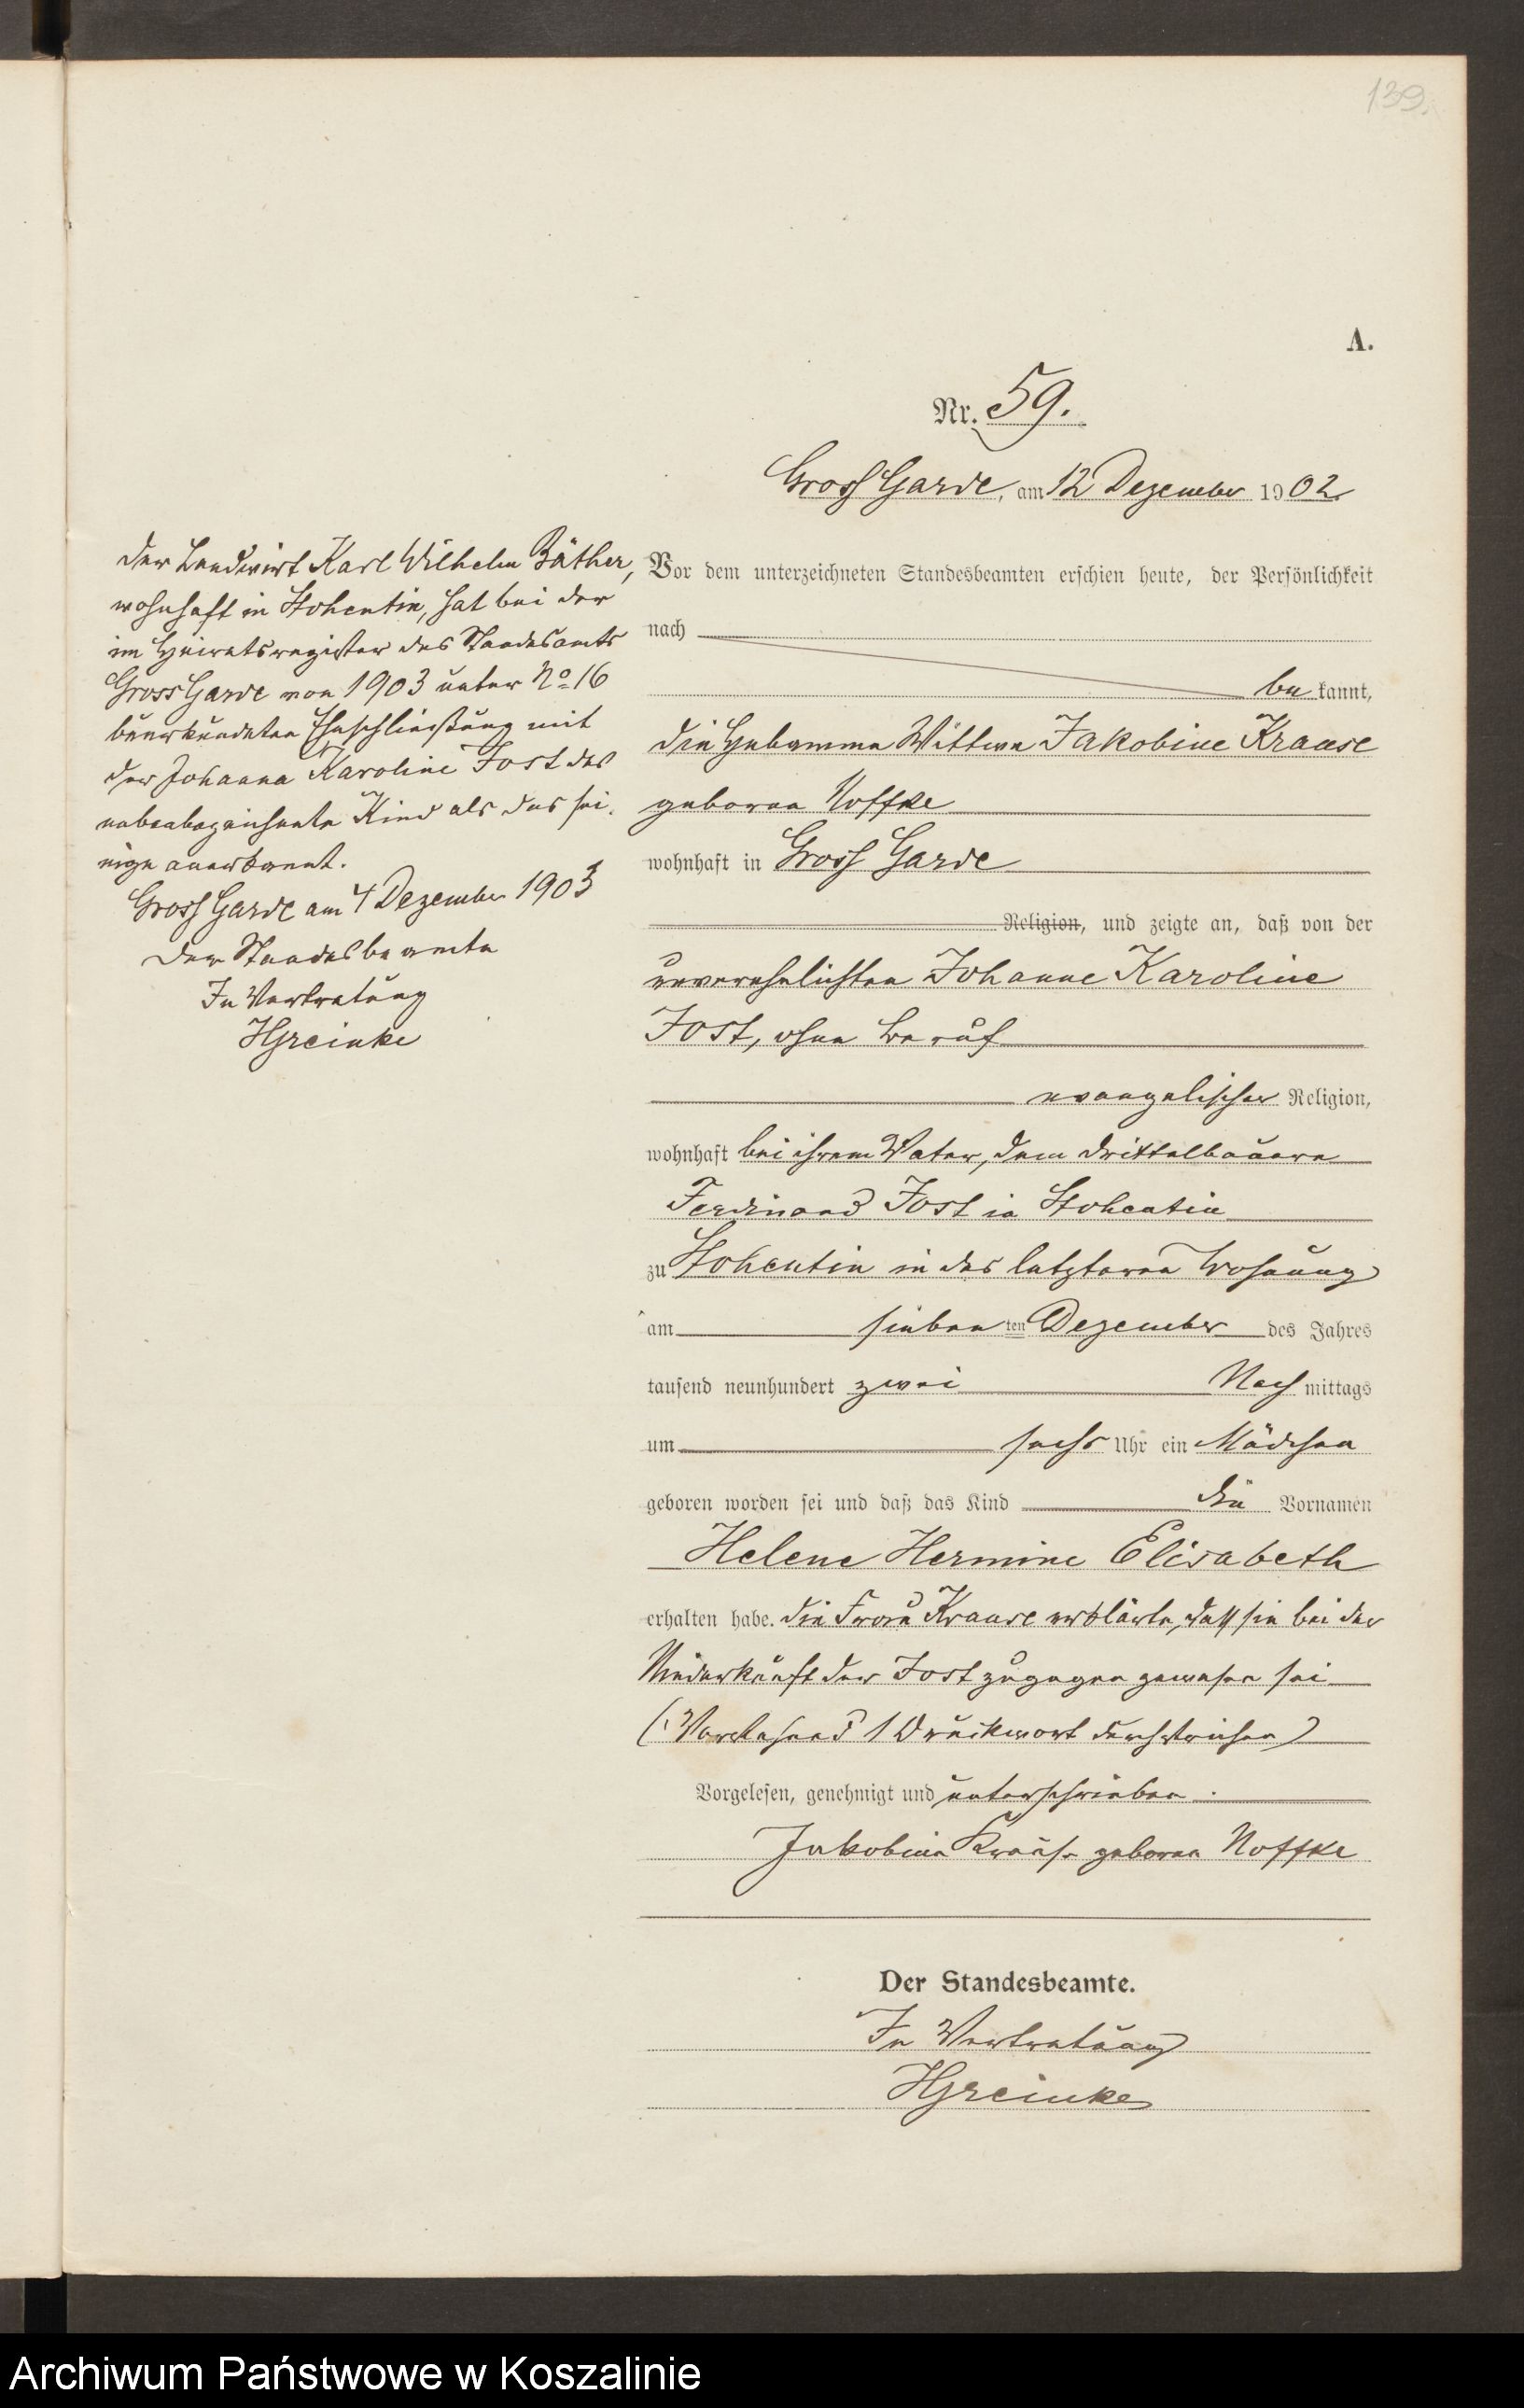 139.
A.
Nr. 59.
Gross Garde, am 12 Dezember 1902.
Der Landwirt Karl Wilhelm Bäther,
wohnhaft in Stohentin, hat bei der
im Heiratsregister des Standesamts
Gross Garde von 1903 unter No 16
beurkundeten Eheschließung mit
der Johanna Karoline Jost das
nebenbezeichnete Kind als das sei-
nige anerkannt.
Gross Garde am 4 Dezember 1903
Der Standesbeamte
In Vertretung
HGreinke
Vor dem unterzeichneten Standesbeamten erschien heute, der Persönlichkeit
nach
be kannt,
die Hebamme Wittwe Jakobine Krause
geborene Noffke
wohnhaft in Gross Garde
Religion, und zeigte an, daß von der
unverehelichten Johanne Karoline
Jost, ohne Beruf
evangelischer Religion,
wohnhaft bei ihrem Vater, dem Drittelbauern
Ferdinand Jost in Stohentin
zu Stohentin in des letzteren Wohnung
am sieben ten Dezember des Jahres
tausend neunhundert zwei Nach mittags
um sechs Uhr ein Mädchen
geboren worden sei und daß das Kind die Vornamen
Helene Hermine Elisabeth
erhalten habe. Die Frau Krause erklärte, daß sie bei der
Niederkunft der Jost zugegen gewesen sei
(Vorstehend 1 Druckwort durchstrichen)
Vorgelesen, genehmigt und unterschrieben.
Jakobine Krause geborene Noffke
Der Standesbeamte.
In Vertretung
HGreinke
Archiwum Państwowe w Koszalinie